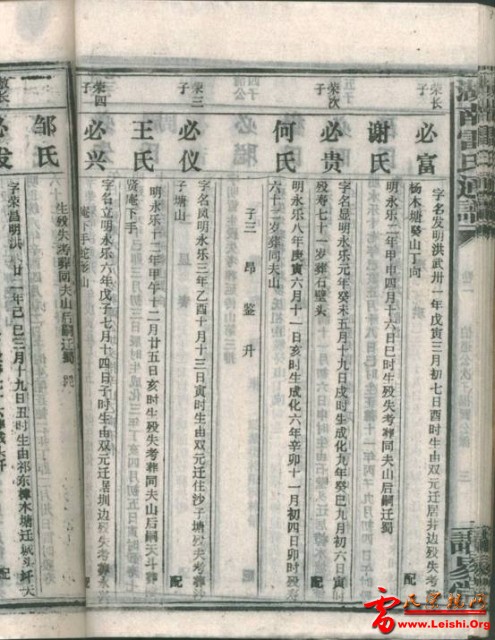 湖南雷氏通譜
荣长子
必富
字名发明洪武卅一年戊寅三月初七日酉时生由双元迁居井边殁失考葬
杨木塘癸山丁向
配
谢氏
明永乐二年甲申四月十六日巳时生殁失考葬同夫山后嗣迁蜀
荣次子
必贵
字名显明永乐元年癸未五月十九日戌时生成化九年癸巳九月初六日寅时
殁寿七十一岁葬石壁头
配
何氏
明永乐八年庚寅六月十一日亥时生成化六年辛卯十一月初四日卯时殁
六十二岁葬同夫山
子三 昂 鉴 升
荣三子
必仪
字名凤明永乐三年乙酉十月十三日寅时生由双元迁住沙子塘殁失考葬
子塘山
配
王氏
明永乐十二年甲午十二月廿五日亥时生殁失考葬同夫山后嗣天斗葬
贤庵下手
荣四子
必兴
字名立明永乐六年戊子七月十四日子时生由双元迁居圳边殁失考葬
庵下手蛇形山
配
邹氏
生殁失考葬同夫山后嗣迁蜀
长
必发
字荣富明洪 廿一年己巳三月十九日丑时生由祁东樟木塘迁
配
雷氏宗亲网
www.Leishi.Org